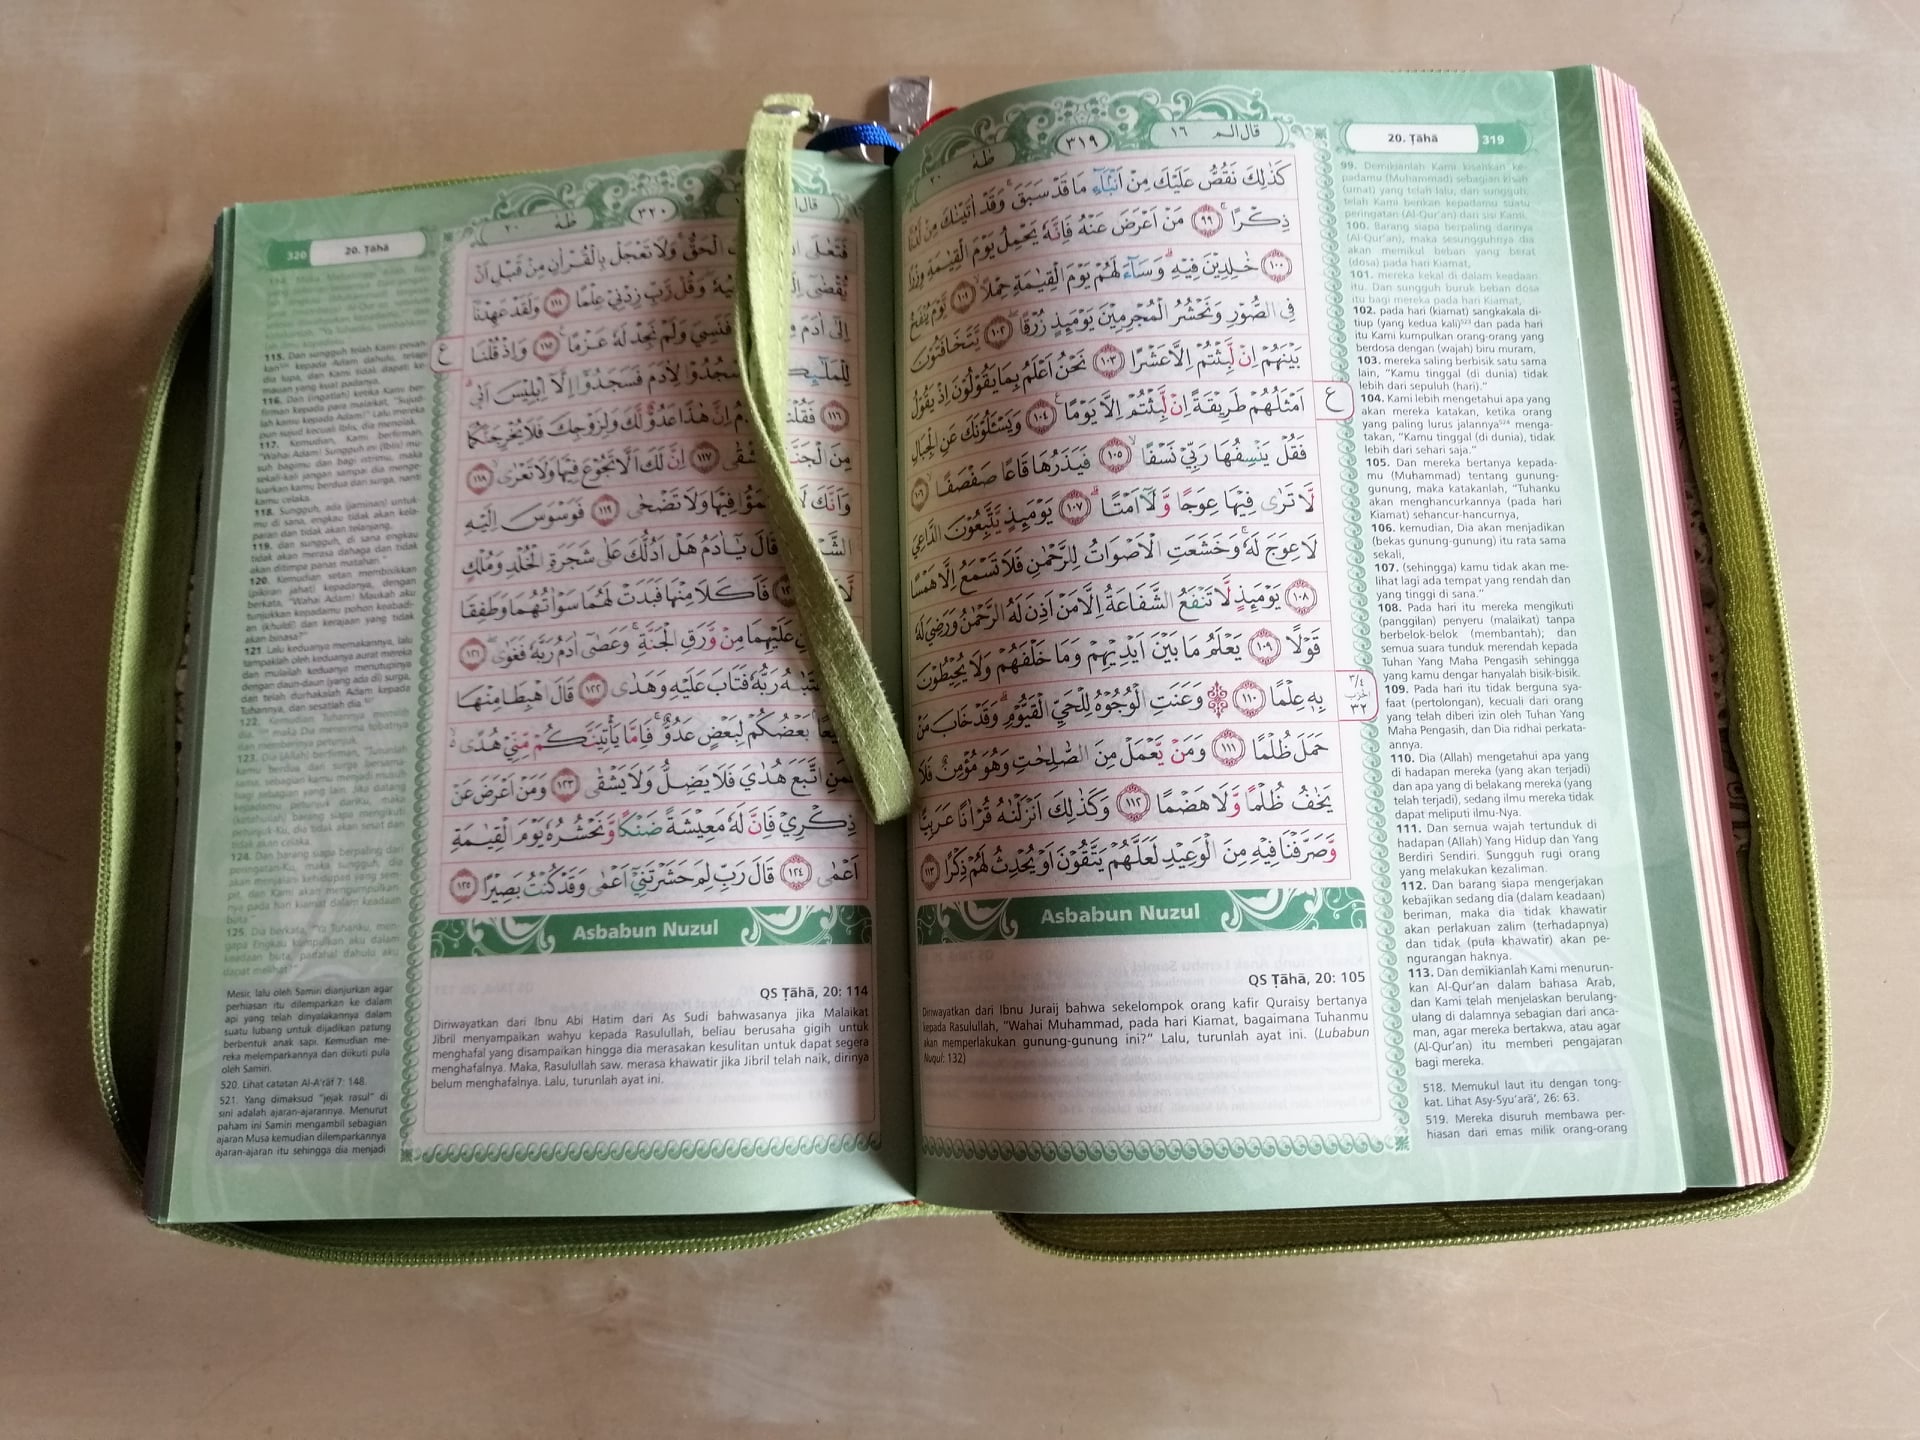 20. Ṭāhā 319
قال الم ١٦
٣١٩
طه ٢٠
كَذٰلِكَ نَقُصُّ عَلَيْكَ مِنْ اَنْۢبَاۤءِ مَا قَدْ سَبَقَۚ وَقَدْ اٰتَيْنٰكَ مِنْ لَّدُنَّا
ذِكْرًا ۚ ٩٩ مَنْ اَعْرَضَ عَنْهُ فَاِنَّهٗ يَحْمِلُ يَوْمَ الْقِيٰمَةِ وِزْرًا
١٠٠ خٰلِدِيْنَ فِيْهِ ۗ وَسَاۤءَ لَهُمْ يَوْمَ الْقِيٰمَةِ حِمْلًا ١٠١ يَّوْمَ يُنْفَخُ
فِى الصُّوْرِ وَنَحْشُرُ الْمُجْرِمِيْنَ يَوْمَىِٕذٍ زُرْقًا ١٠٢ يَّتَخَافَتُوْنَ
بَيْنَهُمْ اِنْ لَّبِثْتُمْ اِلَّا عَشْرًا ١٠٣ نَحْنُ اَعْلَمُ بِمَا يَقُوْلُوْنَ اِذْ يَقُوْلُ
اَمْثَلُهُمْ طَرِيْقَةً اِنْ لَّبِثْتُمْ اِلَّا يَوْمًا ۚ ١٠٤ وَيَسْـَٔلُوْنَكَ عَنِ الْجِبَالِ
فَقُلْ يَنْسِفُهَا رَبِّيْ نَسْفًا ۙ ١٠٥ فَيَذَرُهَا قَاعًا صَفْصَفًا ۙ ١٠٦
لَّا تَرٰى فِيْهَا عِوَجًا وَّلَآ اَمْتًا ۗ ١٠٧ يَوْمَىِٕذٍ يَّتَّبِعُوْنَ الدَّاعِيَ
لَا عِوَجَ لَهٗ ۚ وَخَشَعَتِ الْاَصْوَاتُ لِلرَّحْمٰنِ فَلَا تَسْمَعُ اِلَّا هَمْسًا
١٠٨ يَوْمَىِٕذٍ لَّا تَنْفَعُ الشَّفَاعَةُ اِلَّا مَنْ اَذِنَ لَهُ الرَّحْمٰنُ وَرَضِيَ لَهٗ
قَوْلًا ١٠٩ يَعْلَمُ مَا بَيْنَ اَيْدِيْهِمْ وَمَا خَلْفَهُمْ وَلَا يُحِيْطُوْنَ
بِهٖ عِلْمًا ١١٠ ۞ وَعَنَتِ الْوُجُوْهُ لِلْحَيِّ الْقَيُّوْمِ ۗ وَقَدْ خَابَ مَنْ
حَمَلَ ظُلْمًا ١١١ وَمَنْ يَّعْمَلْ مِنَ الصّٰلِحٰتِ وَهُوَ مُؤْمِنٌ فَلَا
يَخٰفُ ظُلْمًا وَّلَا هَضْمًا ١١٢ وَكَذٰلِكَ اَنْزَلْنٰهُ قُرْاٰنًا عَرَبِيًّا
وَّصَرَّفْنَا فِيْهِ مِنَ الْوَعِيْدِ لَعَلَّهُمْ يَتَّقُوْنَ اَوْ يُحْدِثُ لَهُمْ ذِكْرًا ١١٣
ع
٣/٤
الحزب
٣٢
Asbabun Nuzul
QS Ṭāhā, 20: 105
Diriwayatkan dari Ibnu Juraij bahwa sekelompok orang kafir Quraisy bertanya
kepada Rasulullah, "Wahai Muhammad, pada hari Kiamat, bagaimana Tuhanmu
akan memperlakukan gunung-gunung ini?" Lalu, turunlah ayat ini. (Lubabun
Nuqul: 132)
99. Demikianlah Kami kisahkan ke-
padamu (Muhammad) sebagian kisah
(umat) yang telah lalu, dan sungguh,
telah Kami berikan kepadamu suatu
peringatan (Al-Qur'an) dari sisi Kami.
100. Barang siapa berpaling darinya
(Al-Qur'an), maka sesungguhnya dia
akan memikul beban yang berat
(dosa) pada hari Kiamat,
101. mereka kekal di dalam keadaan
itu. Dan sungguh buruk beban dosa
itu bagi mereka pada hari Kiamat,
102. pada hari (kiamat) sangkakala di-
tiup (yang kedua kali)⁵²³ dan pada hari
itu Kami kumpulkan orang-orang yang
berdosa dengan (wajah) biru muram,
103. mereka saling berbisik satu sama
lain, "Kamu tinggal (di dunia) tidak
lebih dari sepuluh (hari)."
104. Kami lebih mengetahui apa yang
akan mereka katakan, ketika orang
yang paling lurus jalannya⁵²⁴ menga-
takan, "Kamu tinggal (di dunia), tidak
lebih dari sehari saja."
105. Dan mereka bertanya kepada-
mu (Muhammad) tentang gunung-
gunung, maka katakanlah, "Tuhanku
akan menghancurkannya (pada hari
Kiamat) sehancur-hancurnya,
106. kemudian, Dia akan menjadikan
(bekas gunung-gunung) itu rata sama
sekali,
107. (sehingga) kamu tidak akan me-
lihat lagi ada tempat yang rendah dan
yang tinggi di sana."
108. Pada hari itu mereka mengikuti
(panggilan) penyeru (malaikat) tanpa
berbelok-belok (membantah); dan
semua suara tunduk merendah kepada
Tuhan Yang Maha Pengasih sehingga
yang kamu dengar hanyalah bisik-bisik.
109. Pada hari itu tidak berguna sya-
faat (pertolongan), kecuali dari orang
yang telah diberi izin oleh Tuhan Yang
Maha Pengasih, dan Dia ridhai perkata-
annya.
110. Dia (Allah) mengetahui apa yang
di hadapan mereka (yang akan terjadi)
dan apa yang di belakang mereka (yang
telah terjadi), sedang ilmu mereka tidak
dapat meliputi ilmu-Nya.
111. Dan semua wajah tertunduk di
hadapan (Allah) Yang Hidup dan Yang
Berdiri Sendiri. Sungguh rugi orang
yang melakukan kezaliman.
112. Dan barang siapa mengerjakan
kebajikan sedang dia (dalam keadaan)
beriman, maka dia tidak khawatir
akan perlakuan zalim (terhadapnya)
dan tidak (pula khawatir) akan pe-
ngurangan haknya.
113. Dan demikianlah Kami menurun-
kan Al-Qur'an dalam bahasa Arab,
dan Kami telah menjelaskan berulang-
ulang di dalamnya sebagian dari anca-
man, agar mereka bertakwa, atau agar
(Al-Qur'an) itu memberi pengajaran
bagi mereka.
518. Memukul laut itu dengan tong-
kat. Lihat Asy-Syu'arā', 26: 63.
519. Mereka disuruh membawa per-
hiasan dari emas milik orang-orang
320 20. Ṭāhā
٣٢٠
طه ٢٠
فَتَعٰلَى الْحَقُّ ۚ وَلَا تَعْجَلْ بِالْقُرْاٰنِ مِنْ قَبْلِ اَنْ
يُّقْضٰٓى وَقُلْ رَّبِّ زِدْنِيْ عِلْمًا ١١٤ وَلَقَدْ عَهِدْنَآ
اِلٰٓى اٰدَمَ فَنَسِيَ وَلَمْ نَجِدْ لَهٗ عَزْمًا ࣖ ١١٥ وَاِذْ قُلْنَا
لِلْمَلٰۤىِٕكَةِ اسْجُدُوْا لِاٰدَمَ فَسَجَدُوْٓا اِلَّآ اِبْلِيْسَ اَبٰى ۗ
١١٦ فَقُلْنَا اِنَّ هٰذَا عَدُوٌّ لَّكَ وَلِزَوْجِكَ فَلَا يُخْرِجَنَّكُمَا
مِنَ الْجَنَّةِ فَتَشْقٰى ١١٧ اِنَّ لَكَ اَلَّا تَجُوْعَ فِيْهَا وَلَا تَعْرٰى ۙ ١١٨
وَاَنَّكَ لَا تَظْمَؤُا فِيْهَا وَلَا تَضْحٰى ١١٩ فَوَسْوَسَ اِلَيْهِ
قَالَ يٰٓاٰدَمُ هَلْ اَدُلُّكَ عَلٰى شَجَرَةِ الْخُلْدِ وَمُلْكٍ
فَاَكَلَا مِنْهَا فَبَدَتْ لَهُمَا سَوْاٰتُهُمَا وَطَفِقَا
عَلَيْهِمَا مِنْ وَّرَقِ الْجَنَّةِ ۚ وَعَصٰٓى اٰدَمُ رَبَّهٗ فَغَوٰى ۖ ١٢١
رَبُّهٗ فَتَابَ عَلَيْهِ وَهَدٰى ١٢٢ قَالَ اهْبِطَا مِنْهَا
بَعْضُكُمْ لِبَعْضٍ عَدُوٌّ ۚ فَاِمَّا يَأْتِيَنَّكُمْ مِّنِّيْ هُدًى ەۙ
فَمَنِ اتَّبَعَ هُدَايَ فَلَا يَضِلُّ وَلَا يَشْقٰى ١٢٣ وَمَنْ اَعْرَضَ عَنْ
ذِكْرِيْ فَاِنَّ لَهٗ مَعِيْشَةً ضَنْكًا وَّنَحْشُرُهٗ يَوْمَ الْقِيٰمَةِ
اَعْمٰى ١٢٤ قَالَ رَبِّ لِمَ حَشَرْتَنِيْٓ اَعْمٰى وَقَدْ كُنْتُ بَصِيْرًا ١٢٥
ع
Asbabun Nuzul
QS Ṭāhā, 20: 114
Diriwayatkan dari Ibnu Abi Hatim dari As Sudi bahwasanya jika Malaikat
Jibril menyampaikan wahyu kepada Rasulullah, beliau berusaha gigih untuk
menghafal yang disampaikan hingga dia merasakan kesulitan untuk dapat segera
menghafalnya. Maka, Rasulullah saw. merasa khawatir jika Jibril telah naik, dirinya
belum menghafalnya. Lalu, turunlah ayat ini.
115. Dan sungguh telah Kami pesan
kepada Adam dahulu, tetapi
dia lupa, dan Kami tidak dapati ke-
mauan yang kuat padanya.
116. Dan (ingatlah) ketika Kami ber-
firman kepada para malaikat, "Sujud-
lah kamu kepada Adam!" Lalu mereka
pun sujud kecuali Iblis; dia menolak.
117. Kemudian, Kami berfirman,
"Wahai Adam! Sungguh ini (Iblis) mu-
suh bagimu dan bagi istrimu, maka
sekali-kali jangan sampai dia menge-
luarkan kamu berdua dari surga, nanti
kamu celaka.
118. Sungguh, ada (jaminan) untuk-
mu di sana, engkau tidak akan kela-
paran dan tidak akan telanjang.
119. dan sungguh, di sana engkau
tidak akan merasa dahaga dan tidak
akan ditimpa panas matahari."
120. Kemudian setan membisikkan
(pikiran jahat) kepadanya, dengan
berkata, "Wahai Adam! Maukah aku
tunjukkan kepadamu pohon keabadi-
an (khuldi) dan kerajaan yang tidak
akan binasa?"
121. Lalu keduanya memakannya, lalu
tampaklah oleh keduanya aurat mereka
dan mulailah keduanya menutupinya
dengan daun-daun (yang ada di) surga,
dan telah durhakalah Adam kepada
Tuhannya, dan sesatlah dia.
122. Kemudian Tuhannya memilih
dia, maka Dia menerima tobatnya
dan memberinya petunjuk.
123. Dia (Allah) berfirman, "Turunlah
kamu berdua dari surga bersama-
sama, sebagian kamu menjadi musuh
bagi sebagian yang lain. Jika datang
kepadamu petunjuk dariKu, maka
(ketahuilah) barang siapa mengikuti
petunjuk-Ku, dia tidak akan sesat dan
tidak akan celaka.
124. Dan barang siapa berpaling dari
peringatan-Ku, maka sungguh, dia
akan menjalani kehidupan yang sem-
pit, dan Kami akan mengumpulkan-
nya pada hari kiamat dalam keadaan
buta."
125. Dia berkata, "Ya Tuhanku, men-
gapa Engkau kumpulkan aku dalam
keadaan buta, padahal dahulu aku
dapat melihat?"
Mesir, lalu oleh Samiri dianjurkan agar
perhiasan itu dilemparkan ke dalam
api yang telah dinyalakannya dalam
suatu lubang untuk dijadikan patung
berbentuk anak sapi. Kemudian me-
reka melemparkannya dan diikuti pula
oleh Samiri.
520. Lihat catatan Al-A'rāf 7: 148.
521. Yang dimaksud "jejak rasul" di
sini adalah ajaran-ajarannya. Menurut
paham ini Samiri mengambil sebagian
ajaran Musa kemudian dilemparkannya
ajaran-ajaran itu sehingga dia menjadi